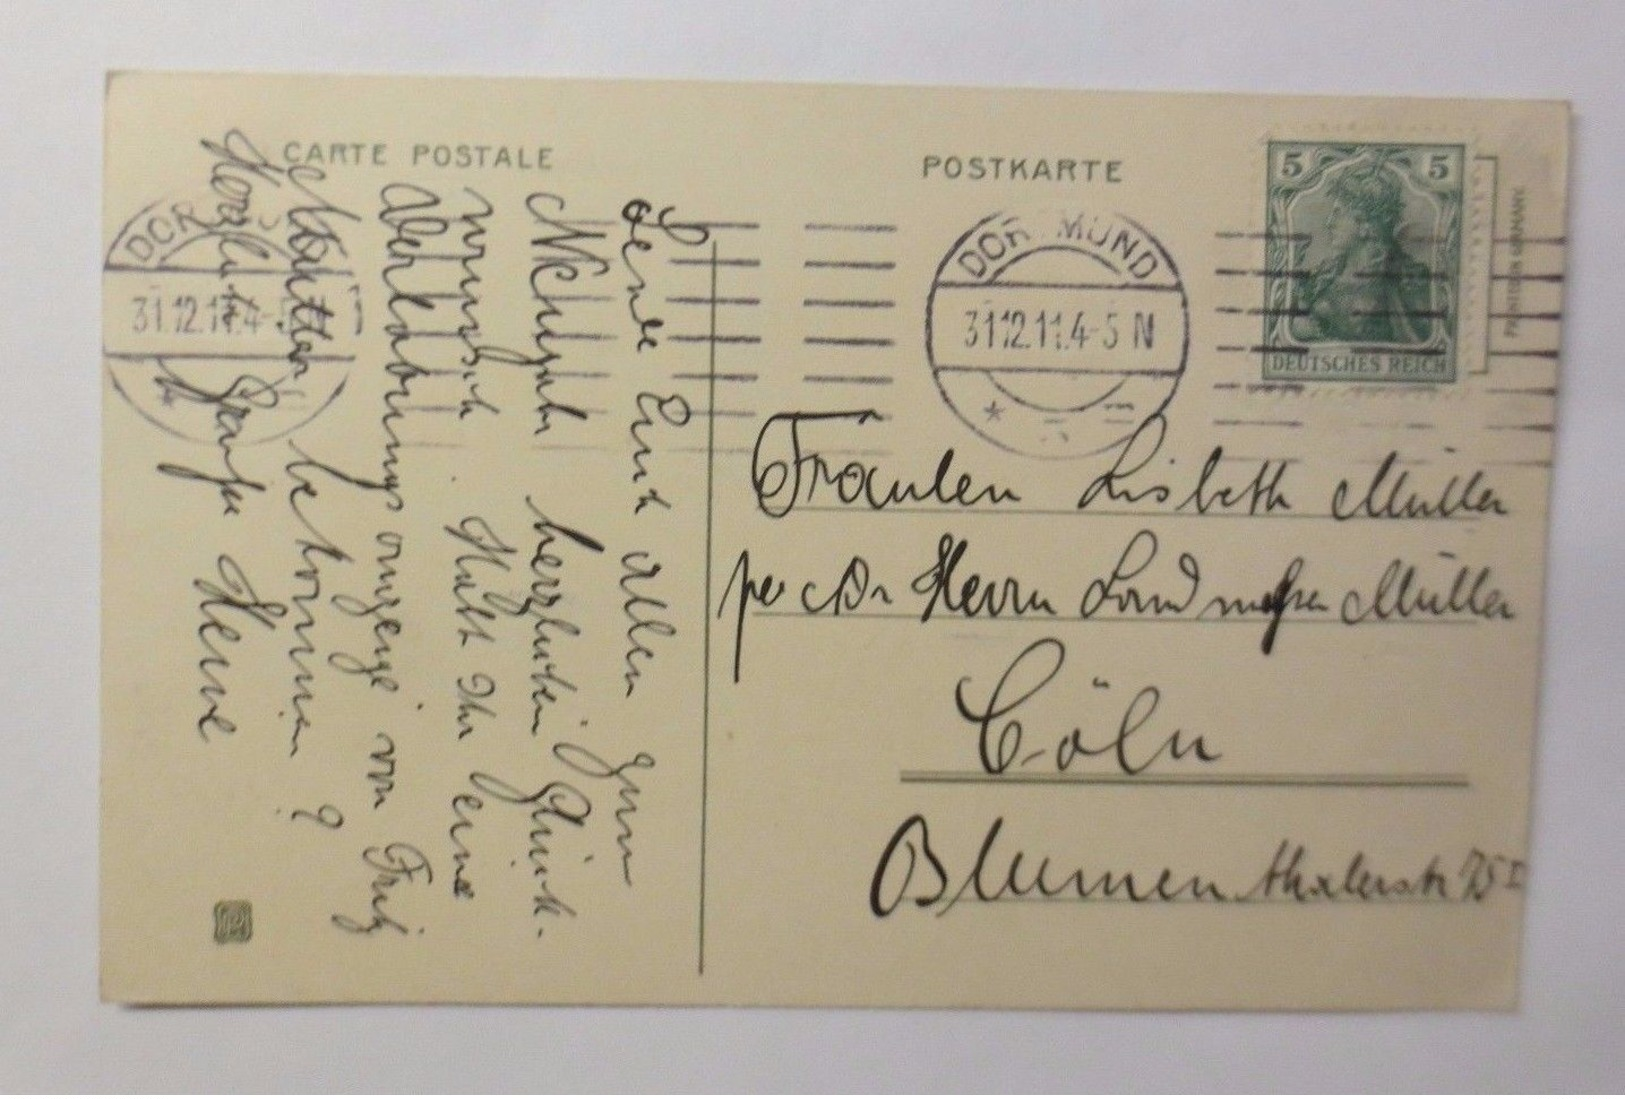 CARTE POSTALE
POSTKARTE
5 5
DEUTSCHES REICH
PRINTED IN GERMANY
DORTMUND
31.12.11.4-5 N
DOR
31.12.11.4-
Sende Euch allen zum
Neujahr herzlichen Glück-
wunsch. Habt Ihr eine
Verlobungsanzeige von Fritz
bekommen?
Herzlichen Gruß
Fräulein Lisbeth Müller
per Adr Herrn Landmesser Müller
Cöln
Blumenthalerstr 75 I